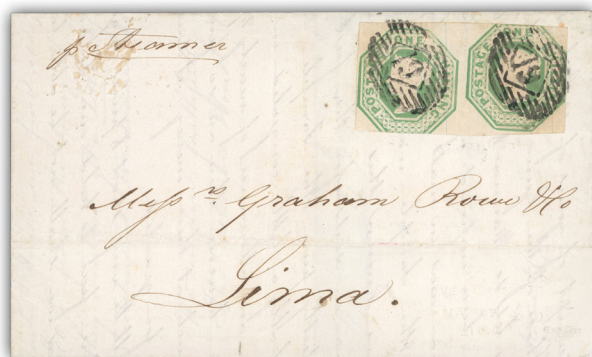 p Steamer
POSTAGE ONE
POSTAGE ONE
Mess^rs. Graham Rowe & Co
Lima.